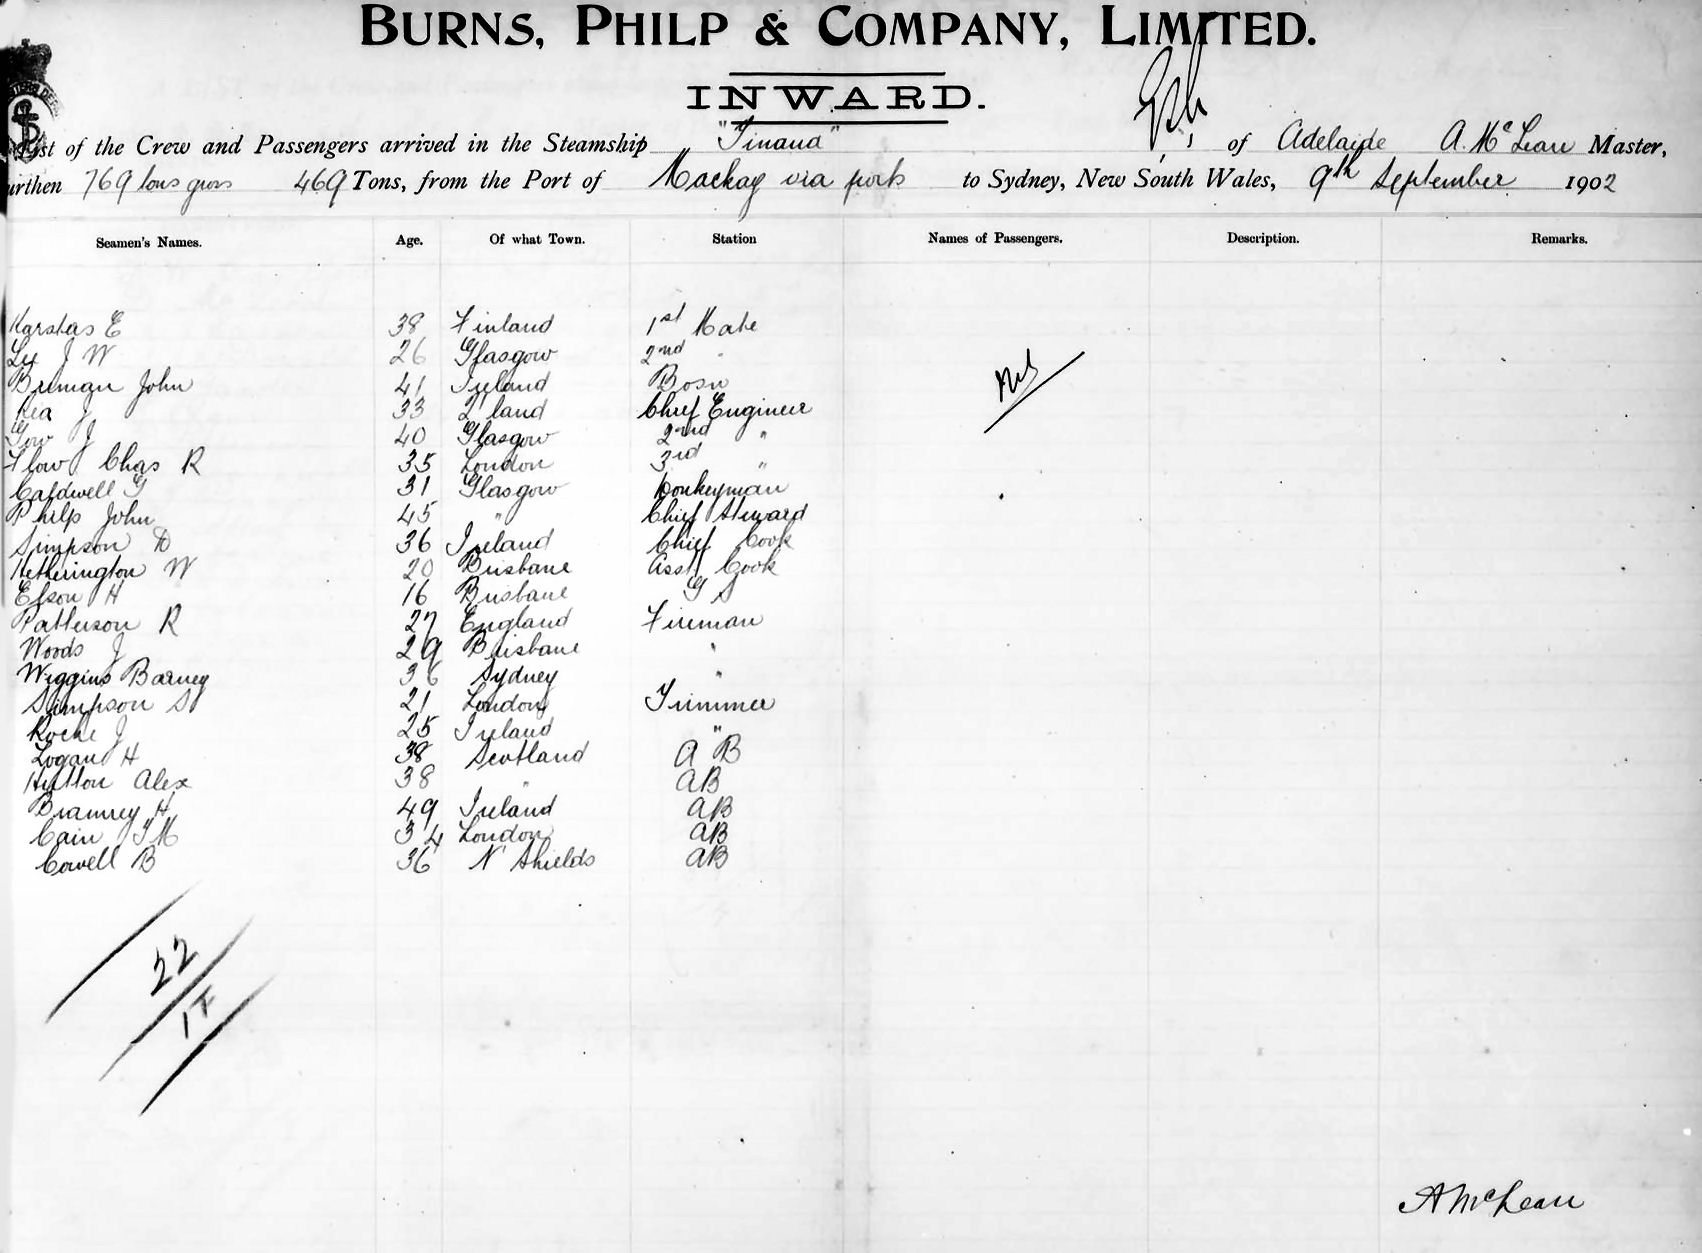 BURNS, PHILP & COMPANY, LIMITED.
INWARD.
List of the Crew and Passengers arrived in the Steamship "Tinana" of Adelaide A. McLean Master,
urthen 769 tons gross 469 Tons, from the Port of Mackay via ports to Sydney, New South Wales, 9th September 1902
Seamen's Names. Age. Of what Town. Station Names of Passengers. Description. Remarks.
Karstas E 38 Finland 1st Mate
J W 26 Glasgow 2nd "
Brennan John 41 Ireland Bosn
Rea J 33 I'land Chief Engineer
Gow J 40 Glasgow 2nd "
Flow Chas R 35 London 3rd "
Caldwell G 31 Glasgow Donkeyman
Philp John 45 " Chief Steward
Simpson D 36 Ireland Chief Cook
Hetherington W 20 Brisbane Asst Cook
Elson H 16 Brisbane G S
Patterson R 27 England Fireman
Woods J 29 Brisbane "
Wiggins Barney 36 Sydney "
Simpson S 21 London Trimmer
Roche J 25 Ireland "
Logan H 38 Scotland A B
Hutton Alex 38 " AB
H 49 Ireland AB
Cain T M 34 London AB
Cowell B 36 N Shields AB
Nil
22
17
A McLean